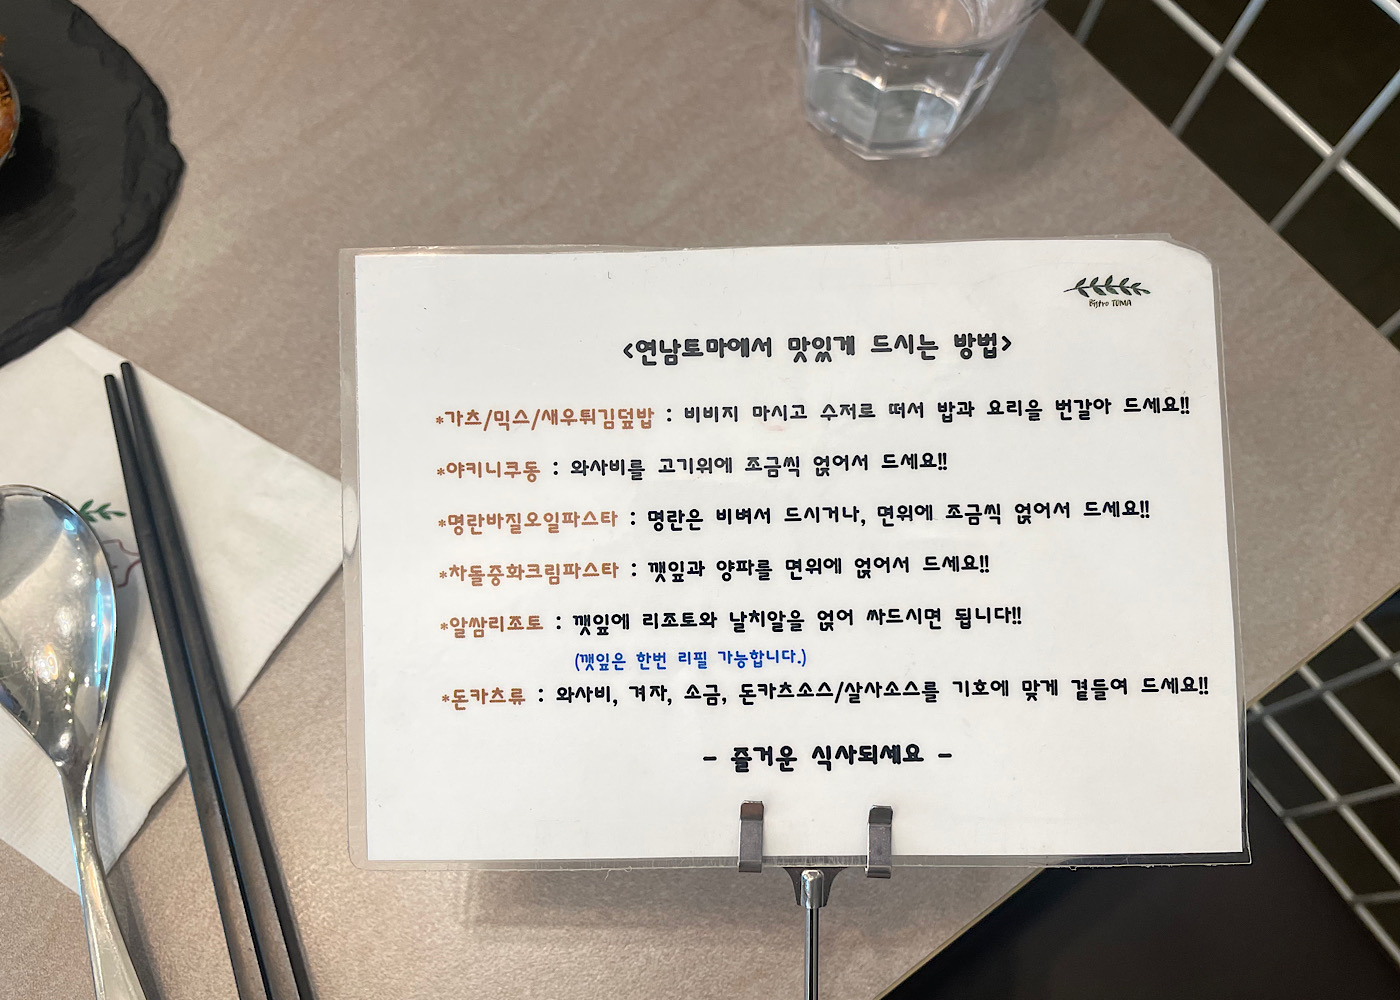 Bistro TOMA
<연남토마에서 맛있게 드시는 방법>
*가츠/믹스/새우튀김덮밥 : 비비지 마시고 수저로 떠서 밥과 요리을 번갈아 드세요!!
*야키니쿠동 : 와사비를 고기위에 조금씩 얹어서 드세요!!
*명란바질오일파스타 : 명란은 비벼서 드시거나, 면위에 조금씩 얹어서 드세요!!
*차돌중화크림파스타 : 깻잎과 양파를 면위에 얹어서 드세요!!
*알쌈리조토 : 깻잎에 리조토와 날치알을 얹어 싸드시면 됩니다!!
(깻잎은 한번 리필 가능합니다.)
*돈카츠류 : 와사비, 겨자, 소금, 돈카츠소스/살사소스를 기호에 맞게 곁들여 드세요!!
- 즐거운 식사되세요 -